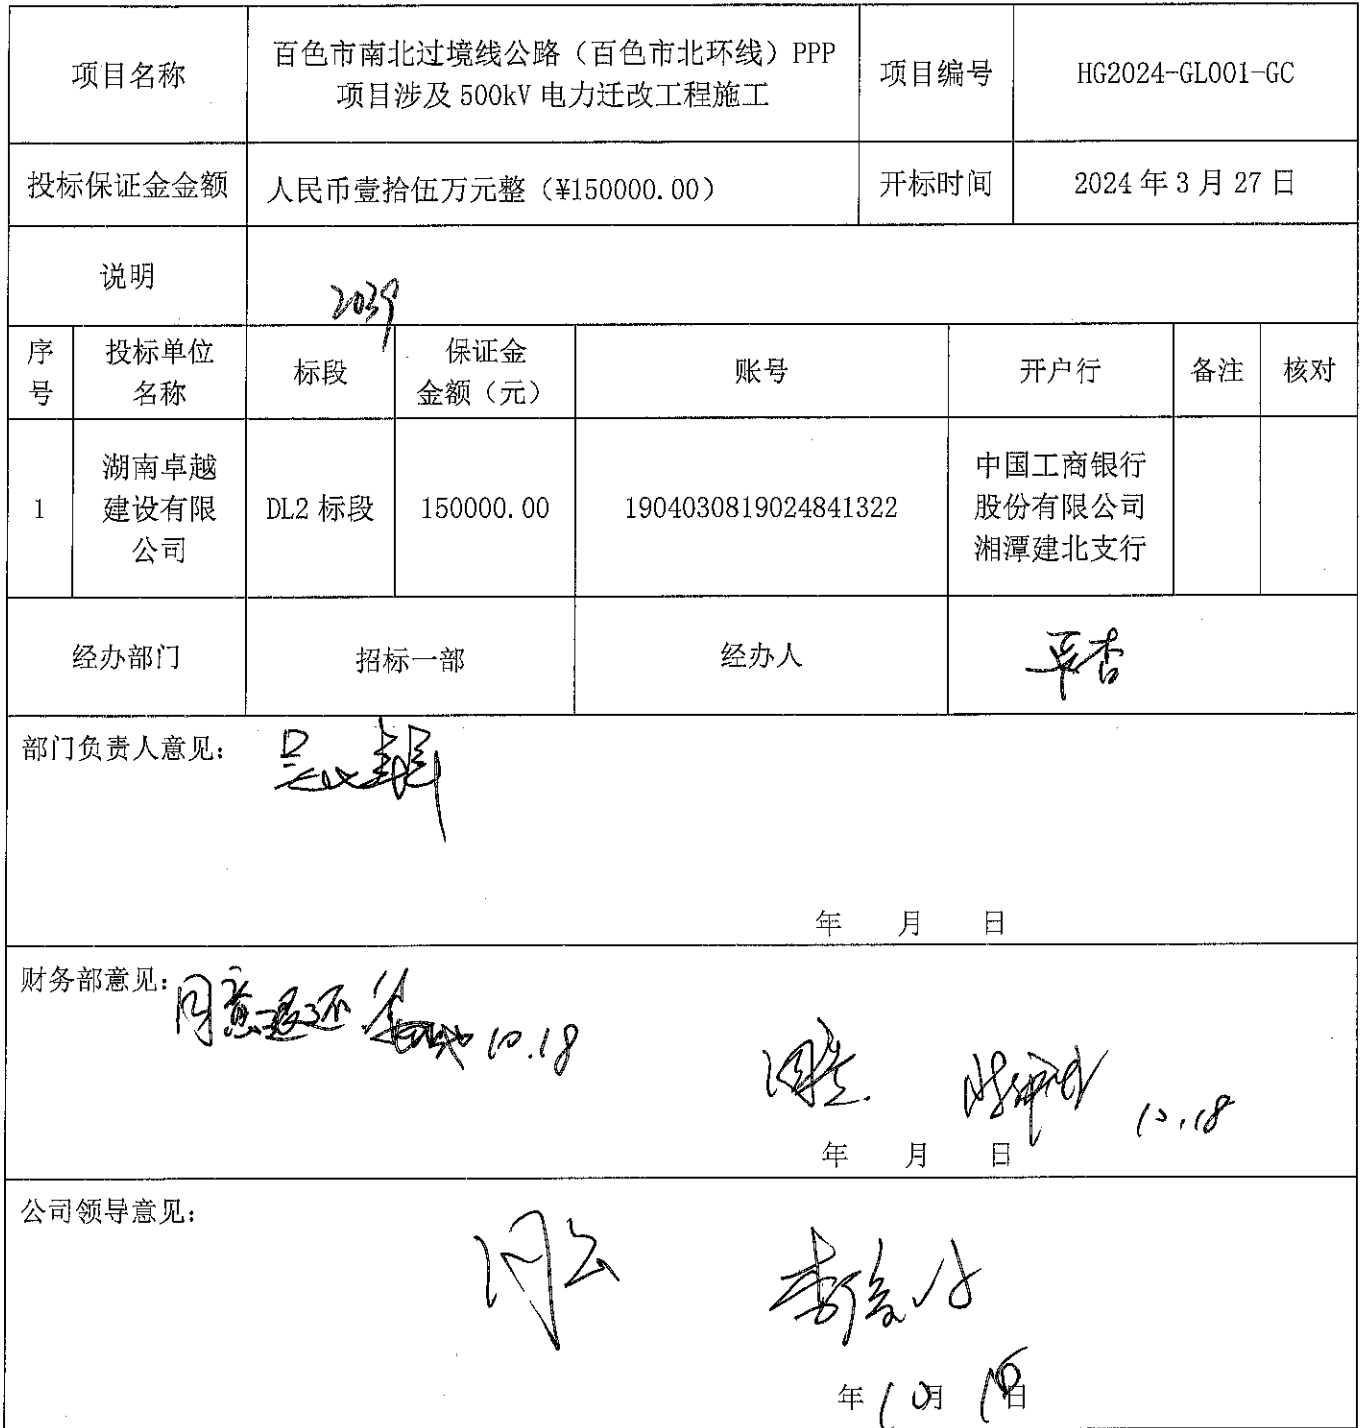 项目名称
百色市南北过境线公路（百色市北环线）PPP
项目涉及 500kV 电力迁改工程施工
项目编号
HG2024-GL001-GC
投标保证金金额
人民币壹拾伍万元整（¥150000.00）
开标时间
2024 年 3 月 27 日
说明
2039
序
号
投标单位
名称
标段
保证金
金额（元）
账号
开户行
备注
核对
1
湖南卓越
建设有限
公司
DL2 标段
150000.00
1904030819024841322
中国工商银行
股份有限公司
湘潭建北支行
经办部门
招标一部
经办人
部门负责人意见：
年 月 日
财务部意见：
同意退还 10.18
同意. 10.18
年 月 日
公司领导意见：
同意
年 10月 18日